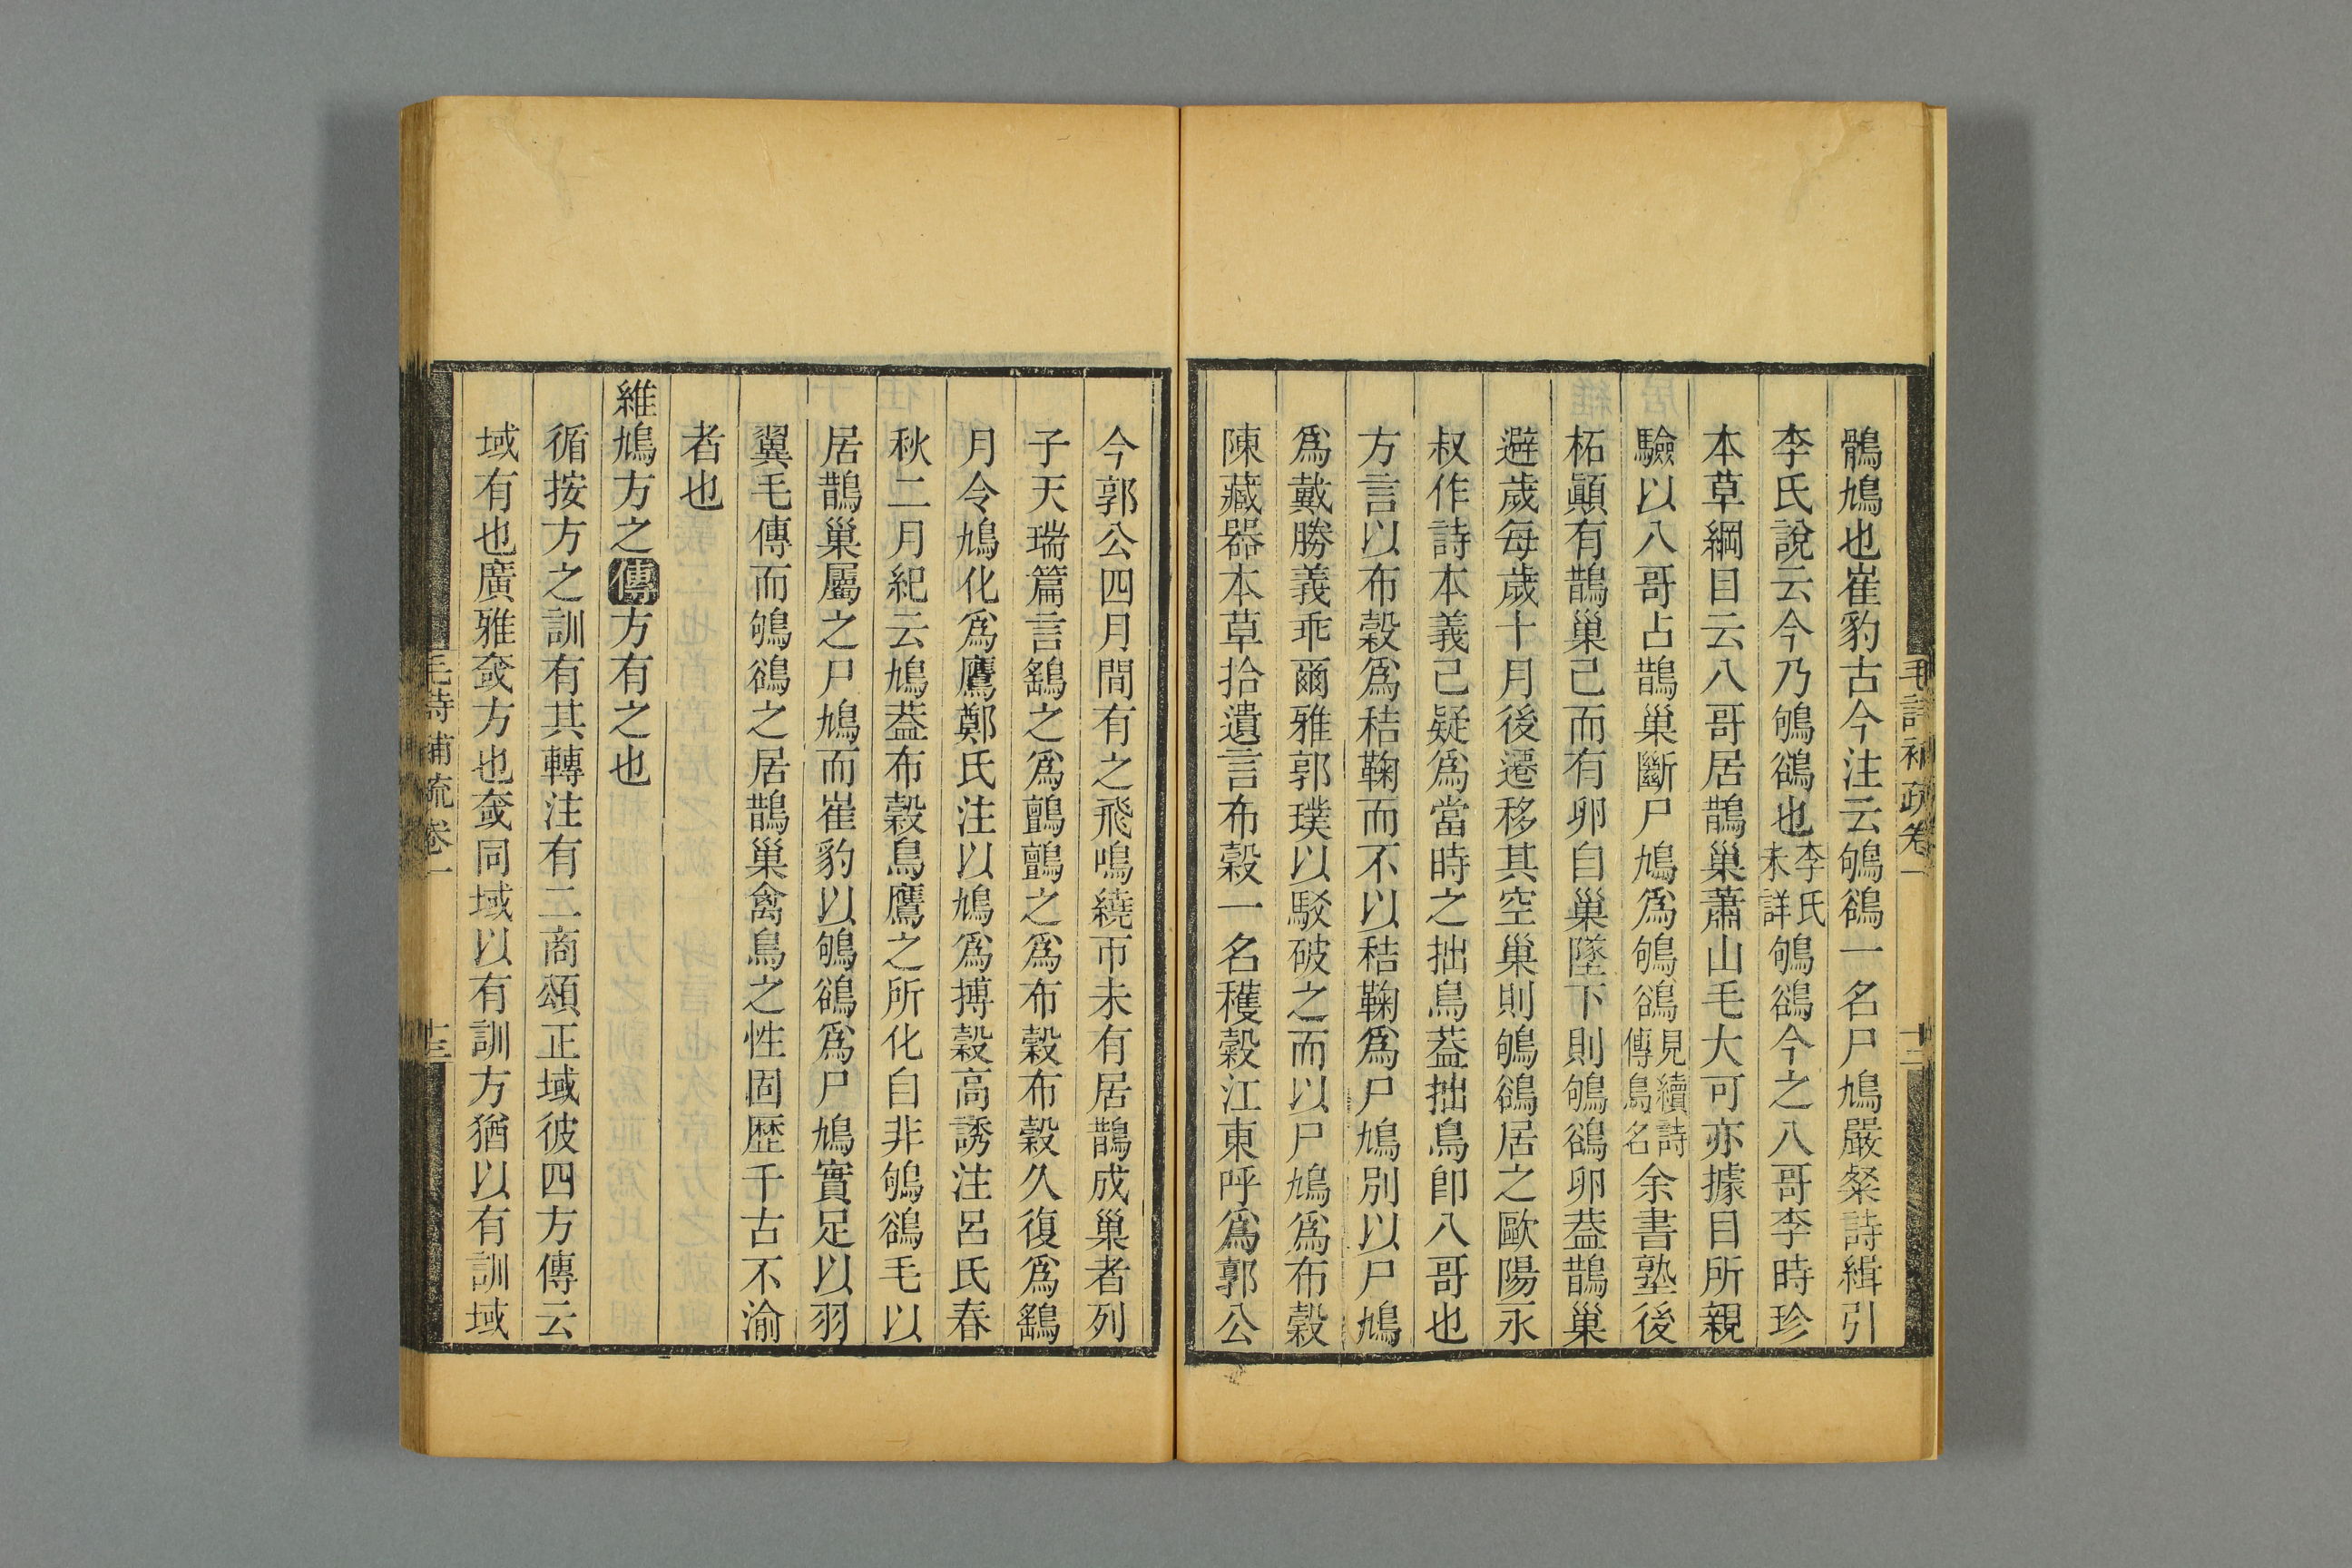 毛詩補疏卷一
十二
鶻鳩也崔豹古今注云鴝鵒一名尸鳩嚴粲詩緝引
李氏說云今乃鴝鵒也李氏未詳鴝鵒今之八哥李時珍
本草綱目云八哥居鵲巢蕭山毛大可亦據目所親
驗以八哥占鵲巢斷尸鳩爲鴝鵒見續詩傳鳥名余書塾後
柘顚有鵲巢已而有卵自巢墜下則鴝鵒卵葢鵲巢
避歲每歲十月後遷移其空巢則鴝鵒居之歐陽永
叔作詩本義已疑爲當時之拙鳥葢拙鳥卽八哥也
方言以布穀爲秸鞠而不以秸鞠爲尸鳩別以尸鳩
爲戴勝義乖爾雅郭璞以駁破之而以尸鳩爲布穀
陳藏器本草拾遺言布穀一名穫穀江東呼爲郭公
今郭公四月間有之飛鳴繞帀未有居鵲成巢者列
子天瑞篇言鷂之爲鸇鸇之爲布穀布穀久復爲鷂
月令鳩化爲鷹鄭氏注以鳩爲搏穀高誘注呂氏春
秋二月紀云鳩葢布穀鳥鷹之所化自非鴝鵒毛以
居鵲巢屬之尸鳩而崔豹以鴝鵒爲尸鳩實足以羽
翼毛傳而鴝鵒之居鵲巢禽鳥之性固歷千古不渝
者也
維鳩方之傳方有之也
循按方之訓有其轉注有二商頌正域彼四方傳云
域有也廣雅㰦方也㰦同域以有訓方猶以有訓域
毛詩補疏卷一
十三